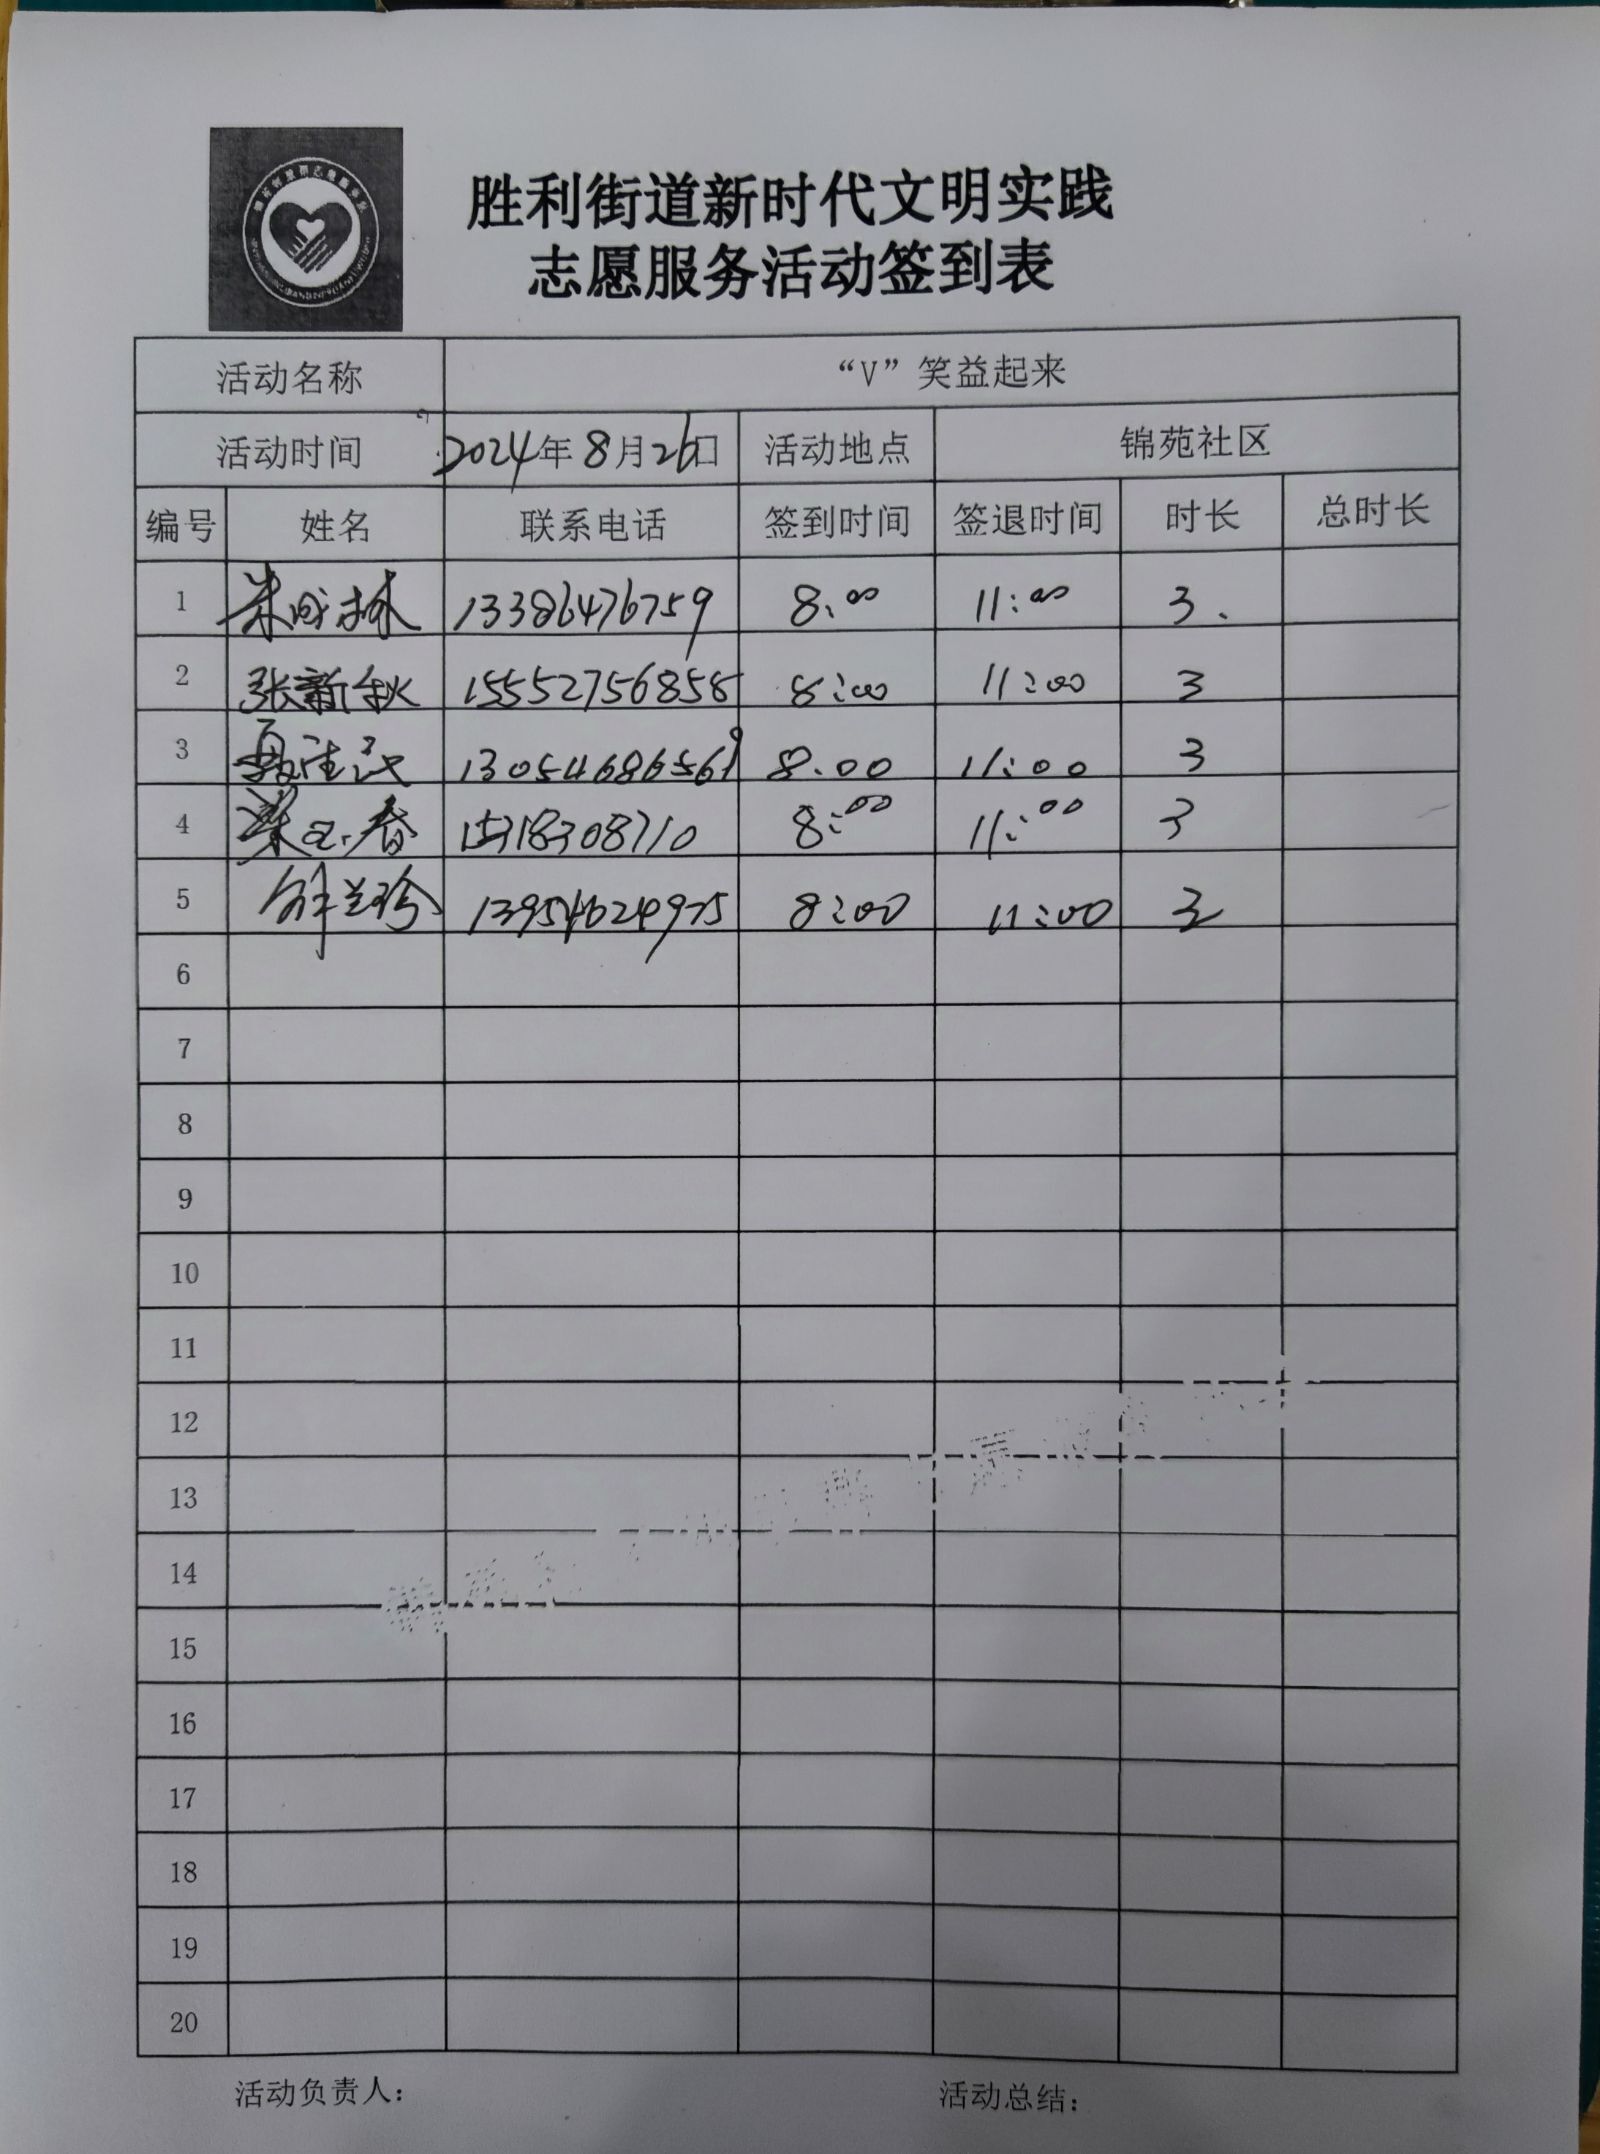 胜利街道新时代文明实践
志愿服务活动签到表
活动名称 “V”笑益起来
活动时间 2024年8月26日 活动地点 锦苑社区
编号 姓名 联系电话 签到时间 签退时间 时长 总时长
1 13386476759 8:00 11:00 3.
2 张新秋 15552756858 8:00 11:00 3
3 13054686569 8:00 11:00 3
4 春 15318308710 8:00 11:00 3
5 解兰珍 13954624975 8:00 11:00 3
6
7
8
9
10
11
12
13
14
15
16
17
18
19
20
活动负责人: 活动总结: